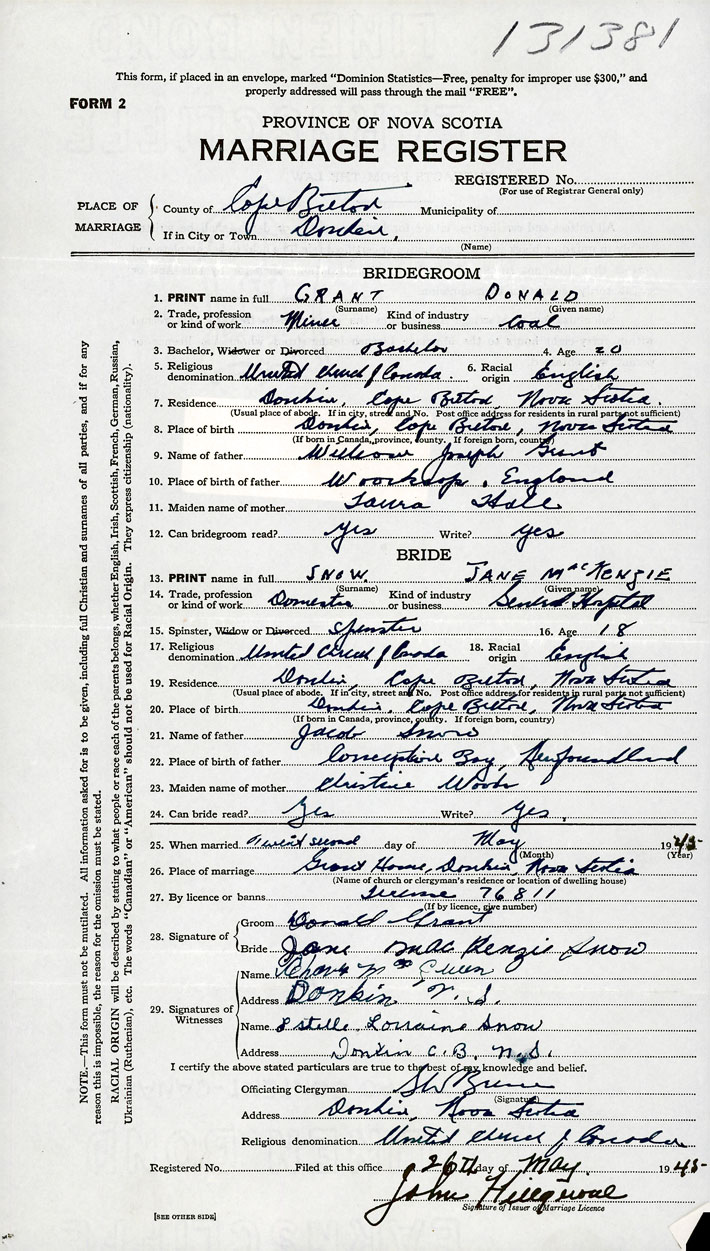 131381
This form, if placed in an envelope, marked "Dominion Statistics—Free, penalty for improper use $300," and
properly addressed will pass through the mail "FREE".
FORM 2
PROVINCE OF NOVA SCOTIA
MARRIAGE REGISTER
REGISTERED No.
(For use of Registrar General only)
PLACE OF MARRIAGE { County of Cape Breton Municipality of
If in City or Town Donkin,
(Name)
BRIDEGROOM
1. PRINT name in full GRANT DONALD
(Surname) (Given name)
2. Trade, profession or kind of work Miner Kind of industry or business Coal
3. Bachelor, Widower or Divorced Bachelor 4. Age 20
5. Religious denomination United Church of Canada. 6. Racial origin English
7. Residence Donkin, Cape Breton, Nova Scotia.
(Usual place of abode. If in city, street and No. Post office address for residents in rural parts not sufficient)
8. Place of birth Donkin, Cape Breton, Nova Scotia
(If born in Canada, province, county. If foreign born, country)
9. Name of father William Joseph Grant
10. Place of birth of father Worksop, England
11. Maiden name of mother Laura Hall
12. Can bridegroom read? Yes Write? yes
BRIDE
13. PRINT name in full SNOW. JANE MacKENZIE
(Surname) (Given name)
14. Trade, profession or kind of work Domestic Kind of industry or business Hospital
15. Spinster, Widow or Divorced Spinster 16. Age 18
17. Religious denomination United Church of Canada 18. Racial origin English
19. Residence Donkin, Cape Breton, Nova Scotia
(Usual place of abode. If in city, street and No. Post office address for residents in rural parts not sufficient)
20. Place of birth Donkin, Cape Breton, Nova Scotia
(If born in Canada, province, county. If foreign born, country)
21. Name of father Jacob Snow
22. Place of birth of father Conception Bay, Newfoundland
23. Maiden name of mother Christine Woods
24. Can bride read? Yes Write? Yes.
25. When married Twenty second day of May 1945
(Month) (Year)
26. Place of marriage Grant Home, Donkin, Nova Scotia
(Name of church or clergyman's residence or location of dwelling house)
27. By licence or banns License 76811
(If by licence, give number)
28. Signature of { Groom Donald Grant
Bride Jane MacKenzie Snow
29. Signatures of Witnesses { Name
Address Donkin N.S.
Name Estelle Lorraine Snow
Address Donkin C.B. N.S.
I certify the above stated particulars are true to the best of my knowledge and belief.
Officiating Clergyman
(Signature)
Address Donkin, Nova Scotia
Religious denomination United Church of Canada
Registered No. Filed at this office 26th day of May 1945
John
Signature of Issuer of Marriage Licence
[SEE OTHER SIDE]
NOTE.—This form must not be mutilated. All information asked for is to be given, including full Christian and surnames of all parties, and if for any
reason this is impossible, the reason for the omission must be stated.
RACIAL ORIGIN will be described by stating to what people or race each of the parents belongs, whether English, Irish, Scottish, French, German, Russian,
Ukrainian (Ruthenian), etc. The words "Canadian" or "American" should not be used for Racial Origin. They express citizenship (nationality).